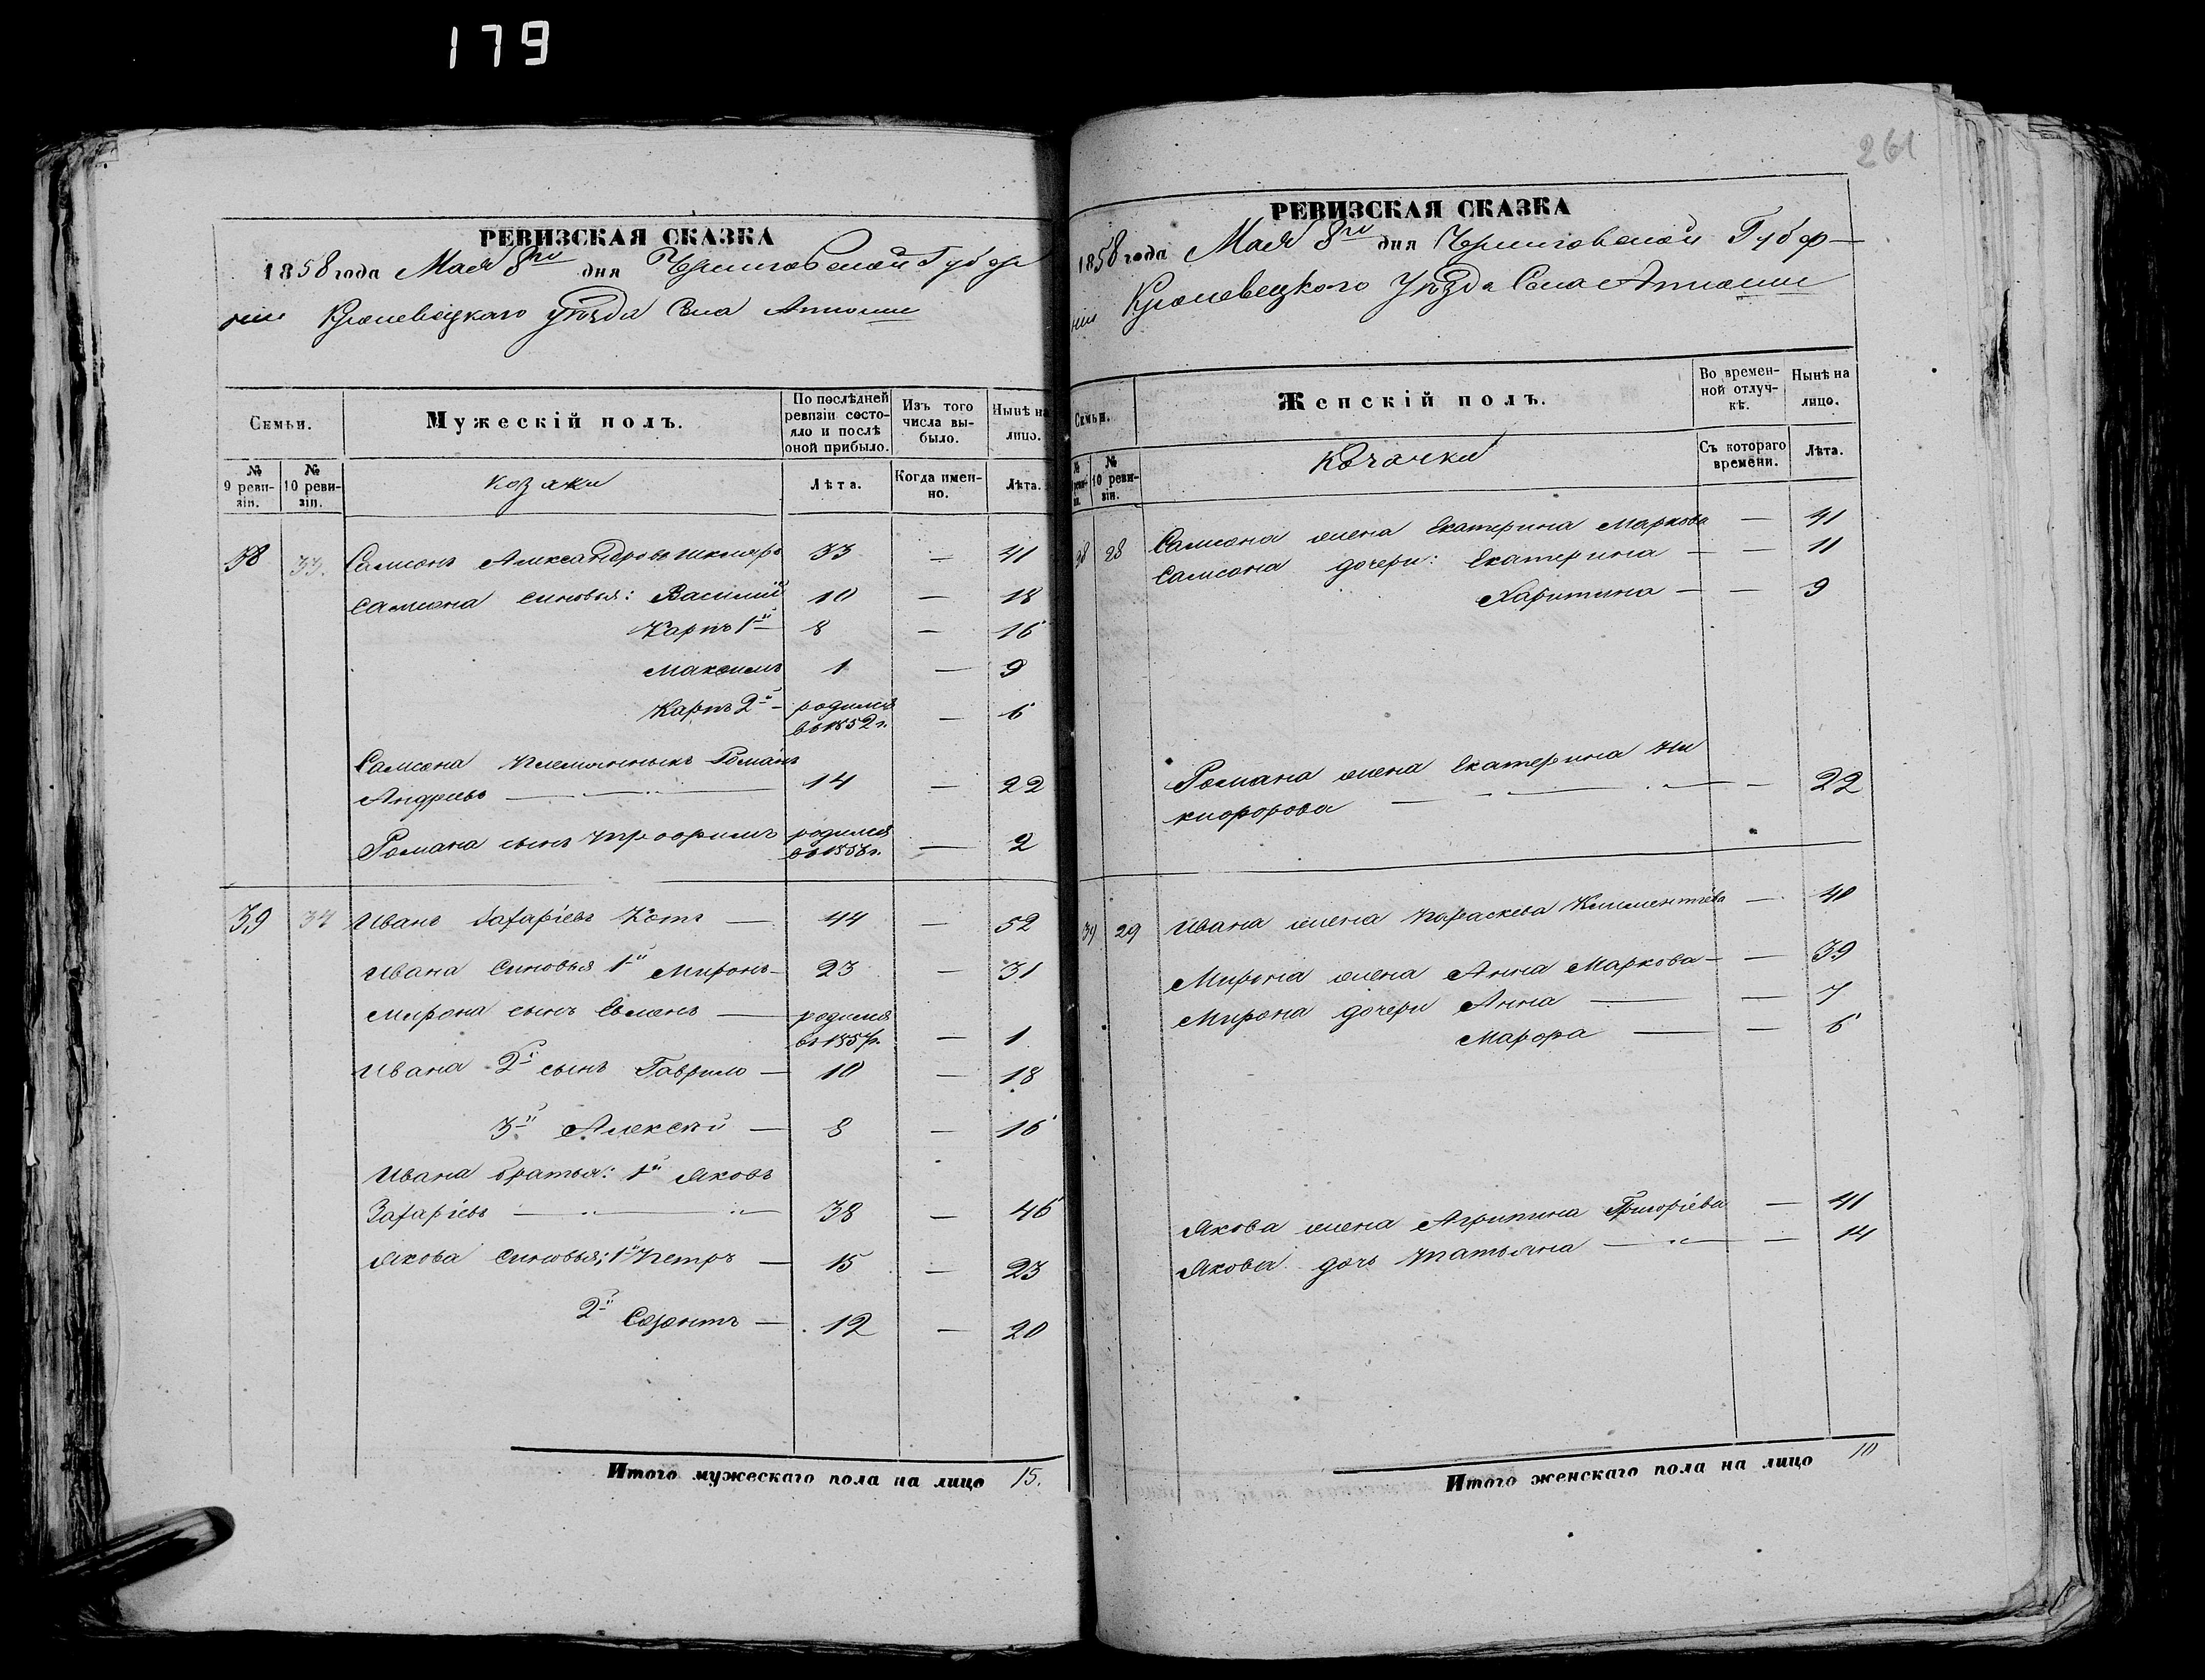 179
261
РЕВИЗСКАЯ СКАЗКА
1858 года Мая 8го дня Черниговской Губер
ніи Кролевецкаго уѣзда Села
Семьи.
Мужескій полъ.
По послѣдней ревизіи состояло и послѣ оной прибыло.
Изъ того числа выбыло.
Нынѣ на лицо.
№ 9 ревизіи.
№ 10 ревизіи.
козаки
Лѣта.
Когда именно.
Лѣта.
38 33. Самсонъ Александровъ Шкляръ 33 — 41
Самсона синовья: Василий 10 — 18
Карпъ 1й — 8 — 16
Максимъ 1 — 9
Карпъ 2й — родился въ 1852 г. — 6
Самсона племянныкъ Романъ
Андреевъ — 14 — 22
Романа сынъ Трофимъ родился въ 1856 г. — 2
39 34 Иванъ Захаріевъ Котъ — 44 — 52
Ивана синовья 1й Миронъ — 23 — 31
Мирона сынъ Семенъ — родился въ 1857 г. — 1
Ивана 2й сынъ Гаврило — 10 — 18
3й Алексѣй — 8 — 16
Ивана братья: 1й Яковъ
Захаріевъ — 38 — 46
Якова синовья: 1й Петръ — 15 — 23
2й Созонтъ — 12 — 20
Итого мужескаго пола на лицо 15.
РЕВИЗСКАЯ СКАЗКА
1858 года Мая 8го дня Черниговской Губер—
ніи Кролевецкого Уѣзда Села
Семьи.
Женскій полъ.
Во временной отлучкѣ.
Нынѣ на лицо.
№ 10 ревизіи.
Козачки
Съ котораго времени.
Лѣта.
38 28 Самсона жена Екатерина Маркова — 41
Самсона дочери: Екатерина — — 11
Харитина — — 9
Романа жена Екатерина Ни
кифорова — — 22
39 29 Ивана жена Параскева Климентѣева — 40
Мирона жена Анна Маркова — — 39
Мирона дочери Анна — — 7
Марфа — — 6
Якова жена Агрипина Григоріева — 41
Якова дочь Татьяна — — 14
Итого женскаго пола на лицо 10